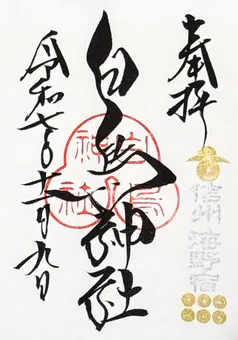 奉拝
信州 海野宿
白鳥神社
令和七年十一月九日